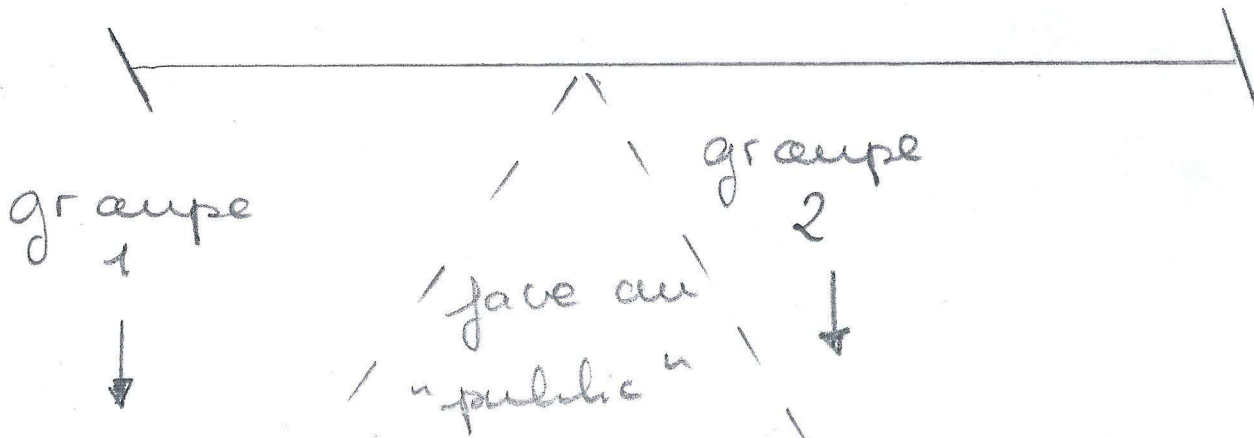 groupe
1
groupe
2
face au
"public"